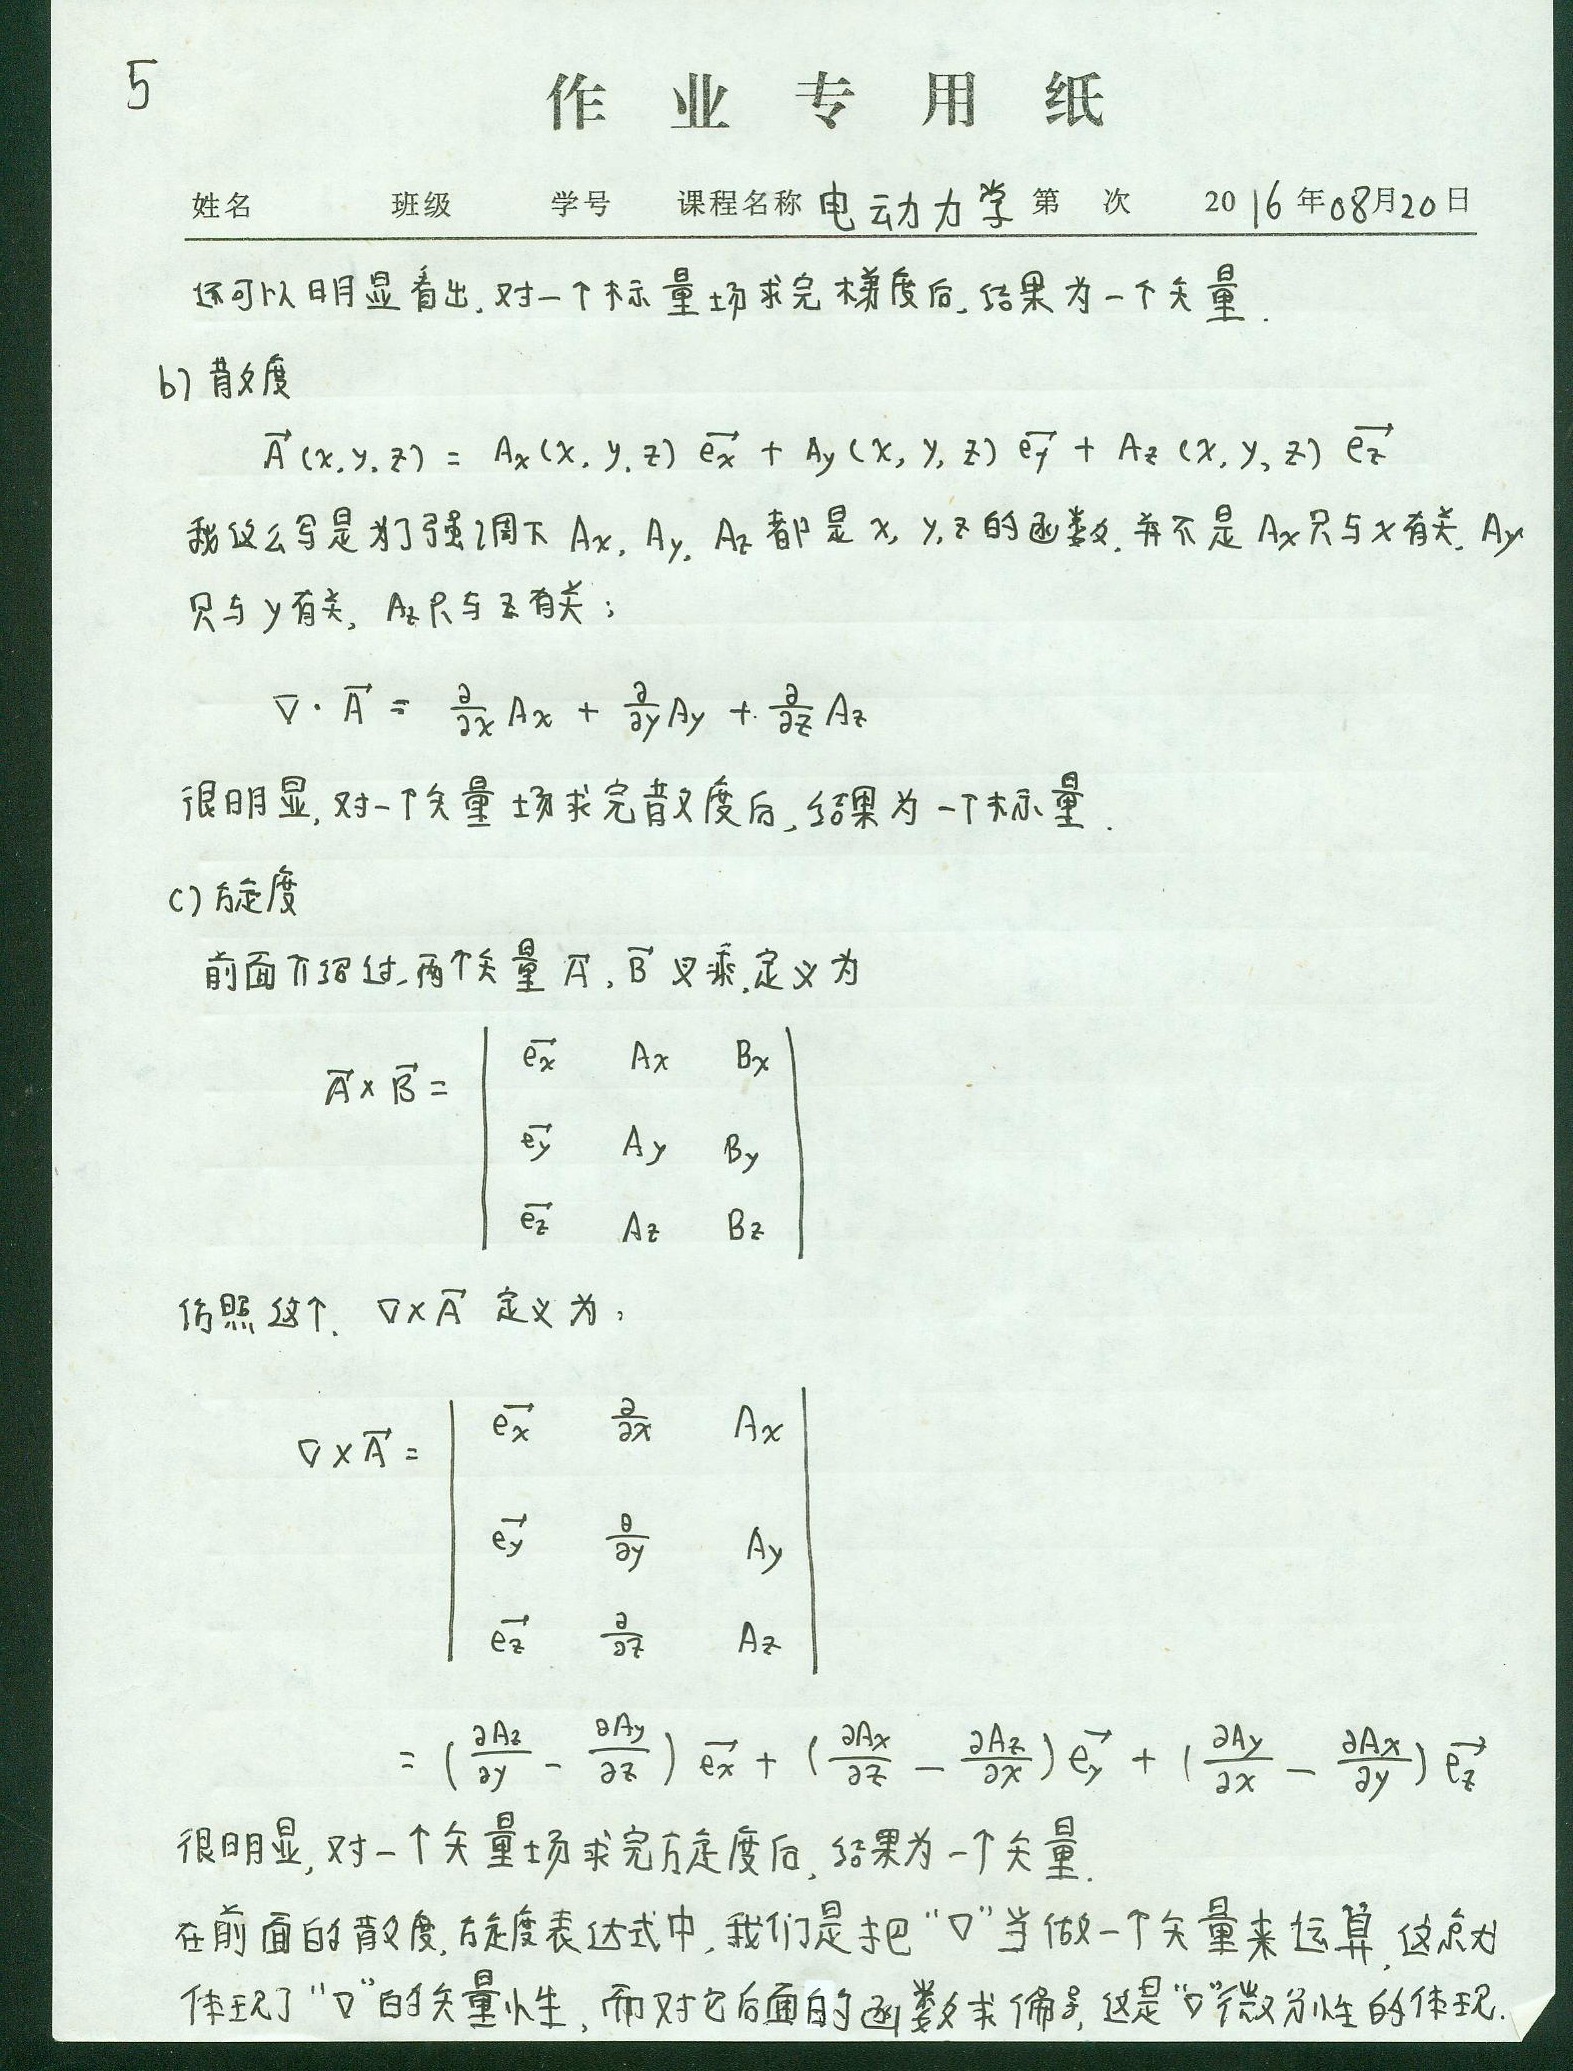 5
作业专用纸
姓名 班级 学号 课程名称 电动力学 第 次 2016年08月20日
还可以明显看出,对一个标量场求完梯度后,结果为一个矢量.
b) 散度
A⃗(x,y,z) = Ax(x,y,z) e⃗x + Ay(x,y,z) e⃗y + Az(x,y,z) e⃗z
我这么写是为了强调下 Ax, Ay, Az 都是 x, y, z 的函数, 并不是 Ax 只与 x 有关, Ay
只与 y 有关, Az 只与 z 有关;
∇·A⃗ = ∂/∂x Ax + ∂/∂y Ay + ∂/∂z Az
很明显,对一个矢量场求完散度后,结果为一个标量.
c) 旋度
前面介绍过,两个矢量 A⃗, B⃗ 叉乘,定义为
A⃗×B⃗ = | e⃗x Ax Bx |
| e⃗y Ay By |
| e⃗z Az Bz |
仿照这个, ∇×A⃗ 定义为,
∇×A⃗ = | e⃗x ∂/∂x Ax |
| e⃗y ∂/∂y Ay |
| e⃗z ∂/∂z Az |
= (∂Az/∂y - ∂Ay/∂z) e⃗x + (∂Ax/∂z - ∂Az/∂x) e⃗y + (∂Ay/∂x - ∂Ax/∂y) e⃗z
很明显,对一个矢量场求完旋度后,结果为一个矢量.
在前面的散度,旋度表达式中,我们是把“∇”当做一个矢量来运算,这点为
体现了“∇”的矢量性,而对它后面的函数求偏导,这是“∇”微分性的体现.